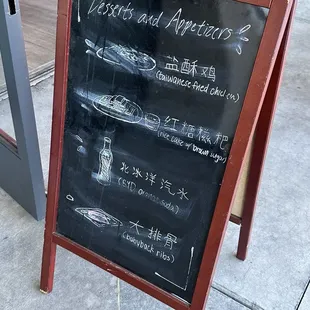 Desserts and Appetizers
盐酥鸡
(taiwanese fried chicken)
红糖糍粑
(rice cake w/ brown sugar)
北冰洋汽水
(orange soda)
大排骨
(babyback ribs)